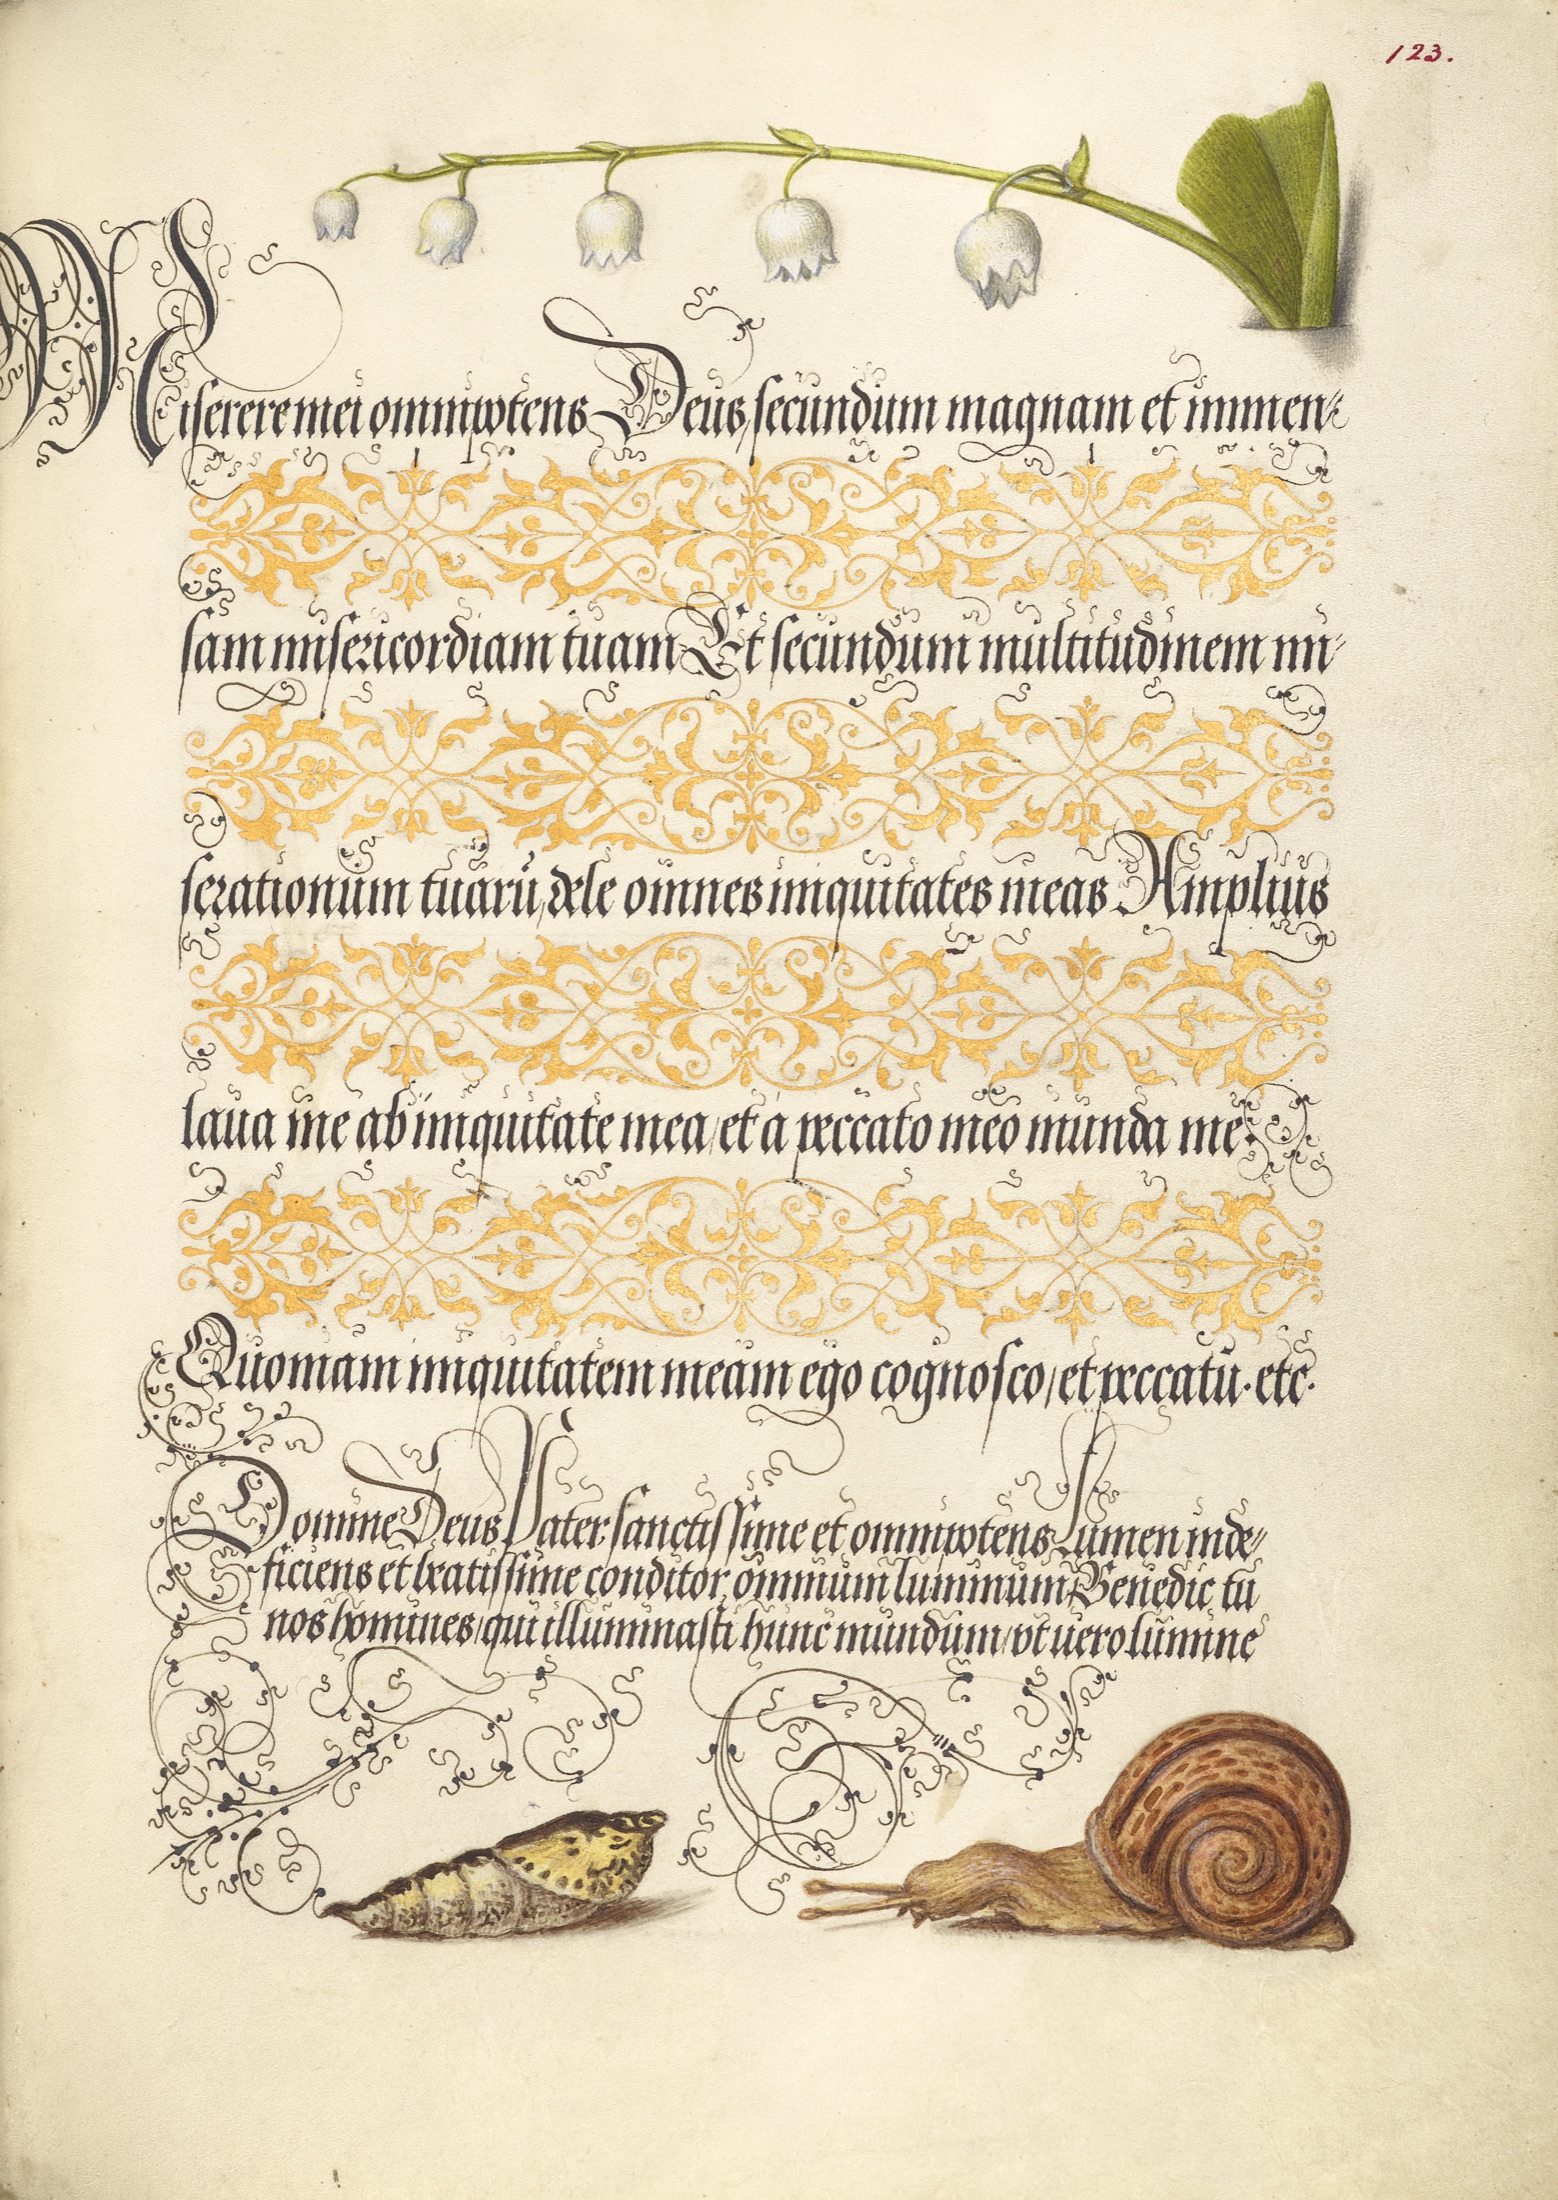 123.
Miserere mei omnipotens Deus, secundum magnam et immen-
sam misericordiam tuam Et secundum multitudinem mi-
serationum tuarū, dele omnes iniquitates meas Amplius
laua me ab iniquitate mea, et à peccato meo munda me.
Quoniam iniquitatem meam ego cognosco, et peccatū. etc.
Domine Deus Pater sanctissime et omnipotens Lumen inde-
ficiens et beatissime conditor omnium luminum Benedic tu
nos homines, qui illuminasti hunc mundum, vt uero lumine